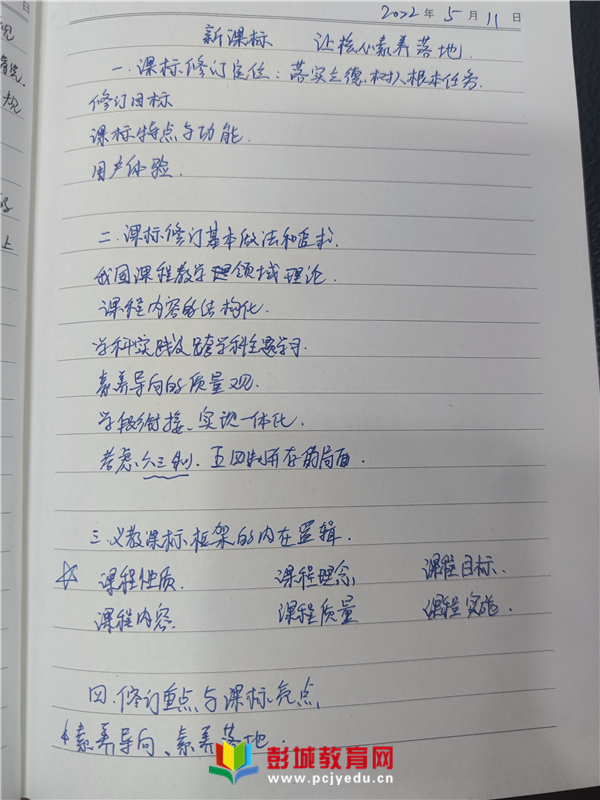 2022年5月11日
新课标 让核心素养落地
一、课标修订定位：落实立德树人根本任务
修订目标
课标特点与功能
用户体验
二、课标修订基本做法和追求
我国课程教学领域理论
课程内容的结构化
学科实践及跨学科主题学习
素养导向的质量观
学段衔接、实现一体化
考虑六三制、五四制并存的局面
三、义教课标框架的内在逻辑
☆ 课程性质 课程理念 课程目标
课程内容 课程质量 课程实施
四、修订重点与课标亮点
素养导向、素养落地
彭城教育网
www.pcjyedu.cn